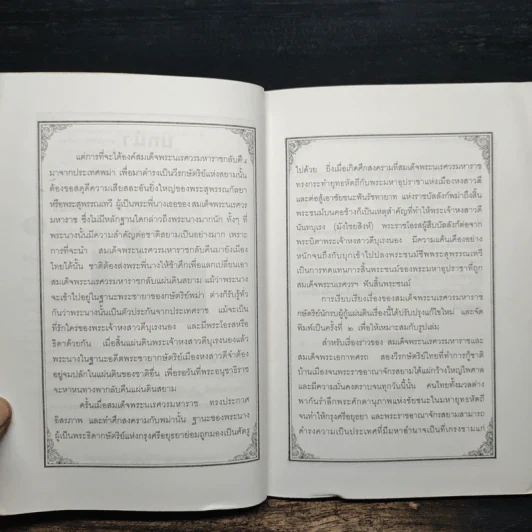 แต่การที่จะได้องค์สมเด็จพระนเรศวรมหาราชกลับคืน
มาจากประเทศพม่า เพื่อมาดำรงเป็นวีรกษัตริย์แห่งสยามนั้น
ต้องขอสดุดีความเสียสละอันยิ่งใหญ่ของพระสุพรรณกัลยา
หรือพระสุวรรณเทวี ผู้เป็นพระพี่นางเธอของสมเด็จพระนเรศวรมหา
ราช ซึ่งไม่มีหลักฐานใดกล่าวถึงพระนางมากนัก ทั้งๆ ที่
พระนางนั้นมีความสำคัญต่อชาติสยามเป็นอย่างมาก เพราะ
การที่จะนำ สมเด็จพระนเรศวรมหาราชกลับคืนมายังเมือง
ไทยได้นั้น ชาติต้องส่งพระพี่นางให้ข้าศึกเพื่อแลกเปลี่ยนเอา
สมเด็จพระนเรศวรมหาราชกลับแผ่นดินสยาม แม้ว่าพระนาง
จะเข้าไปอยู่ในฐานะพระชายาของกษัตริย์พม่า ต่างก็รับรู้ทั่ว
กันว่าพระนางนั้นเป็นตัวประกันจากประเทศราช แม้จะเป็น
ที่รักใคร่ของพระเจ้าหงสาวดีบุเรงนอง และมีพระโอรสหรือ
ธิดาด้วยกัน เมื่อสิ้นแผ่นดินพระเจ้าหงสาวดีบุเรงนองแล้ว
พระนางในฐานะอดีตพระชายากษัตริย์เมืองหงสาวดีจำต้อง
อยู่จมปลักในแผ่นดินของชาติอื่น เพื่อรอวันที่พระอนุชาธิราช
จะหาหนทางพากลับคืนแผ่นดินสยาม
ครั้นเมื่อสมเด็จพระนเรศวรมหาราช ทรงประกาศ
อิสรภาพ และทำศึกสงครามกับพม่านั้น ฐานะของพระนาง
ผู้เป็นพระธิดากษัตริย์แห่งกรุงศรีอยุธยาย่อมถูกมองเป็นศัตรู
ไปด้วย ยิ่งเมื่อเกิดศึกสงครามที่สมเด็จพระนเรศวรมหาราช
ทรงกระทำยุทธหัตถีกับพระมหาอุปราชาแห่งเมืองหงสาวดี
และต่อสู้เอาชัยชนะพันรัชทายาท แห่งราชบัลลังก์พม่าถึงสิ้น
พระชนม์บนคอช้างก็เป็นเหตุสำคัญที่ทำให้พระเจ้าหงสาวดี
นันทบุเรง (มังไชยสิงห์) พระราชโอรสผู้สืบบัลลังก์ต่อจาก
พระบิดาพระเจ้าหงสาวดีบุเรงนอง มีความแค้นเคืองอย่าง
หนักจนถึงกับบุกเข้าไปปลงพระชนม์ชีพพระสุพรรณเทวี
เป็นการทดแทนการสิ้นพระชนม์ของพระมหาอุปราชาที่ถูก
สมเด็จพระนเรศวรฯ ฟันสิ้นพระชนม์
การเรียบเรียงเรื่องของสมเด็จพระนเรศวรมหาราช
กษัตริย์นักรบผู้กู้แผ่นดินเรื่องนี้ได้ปรับปรุงแก้ไขใหม่ และจัด
พิมพ์เป็นครั้งที่ ๒ เพื่อให้เหมาะสมกับรูปเล่ม
สำหรับเรื่องราวของ สมเด็จพระนเรศวรมหาราชและ
สมเด็จพระเอกาทศรถ สองวีรกษัตริย์ไทยที่ทำการกู้ชาติ
บ้านเมืองจนพระราชอาณาจักรสยามได้แผ่กว้างใหญ่ไพศาล
และมีความมั่นคงตราบจนทุกวันนี้นั้น คนไทยทั้งมวลต่าง
พากันรำลึกพระศักดานุภาพแห่งชัยชนะในมหายุทธหัตถี
จนทำให้กรุงศรีอยุธยา และพระราชอาณาจักรสยามสามารถ
ดำรงความเป็นประเทศที่มีมหาอำนาจเป็นที่เกรงขามแก่